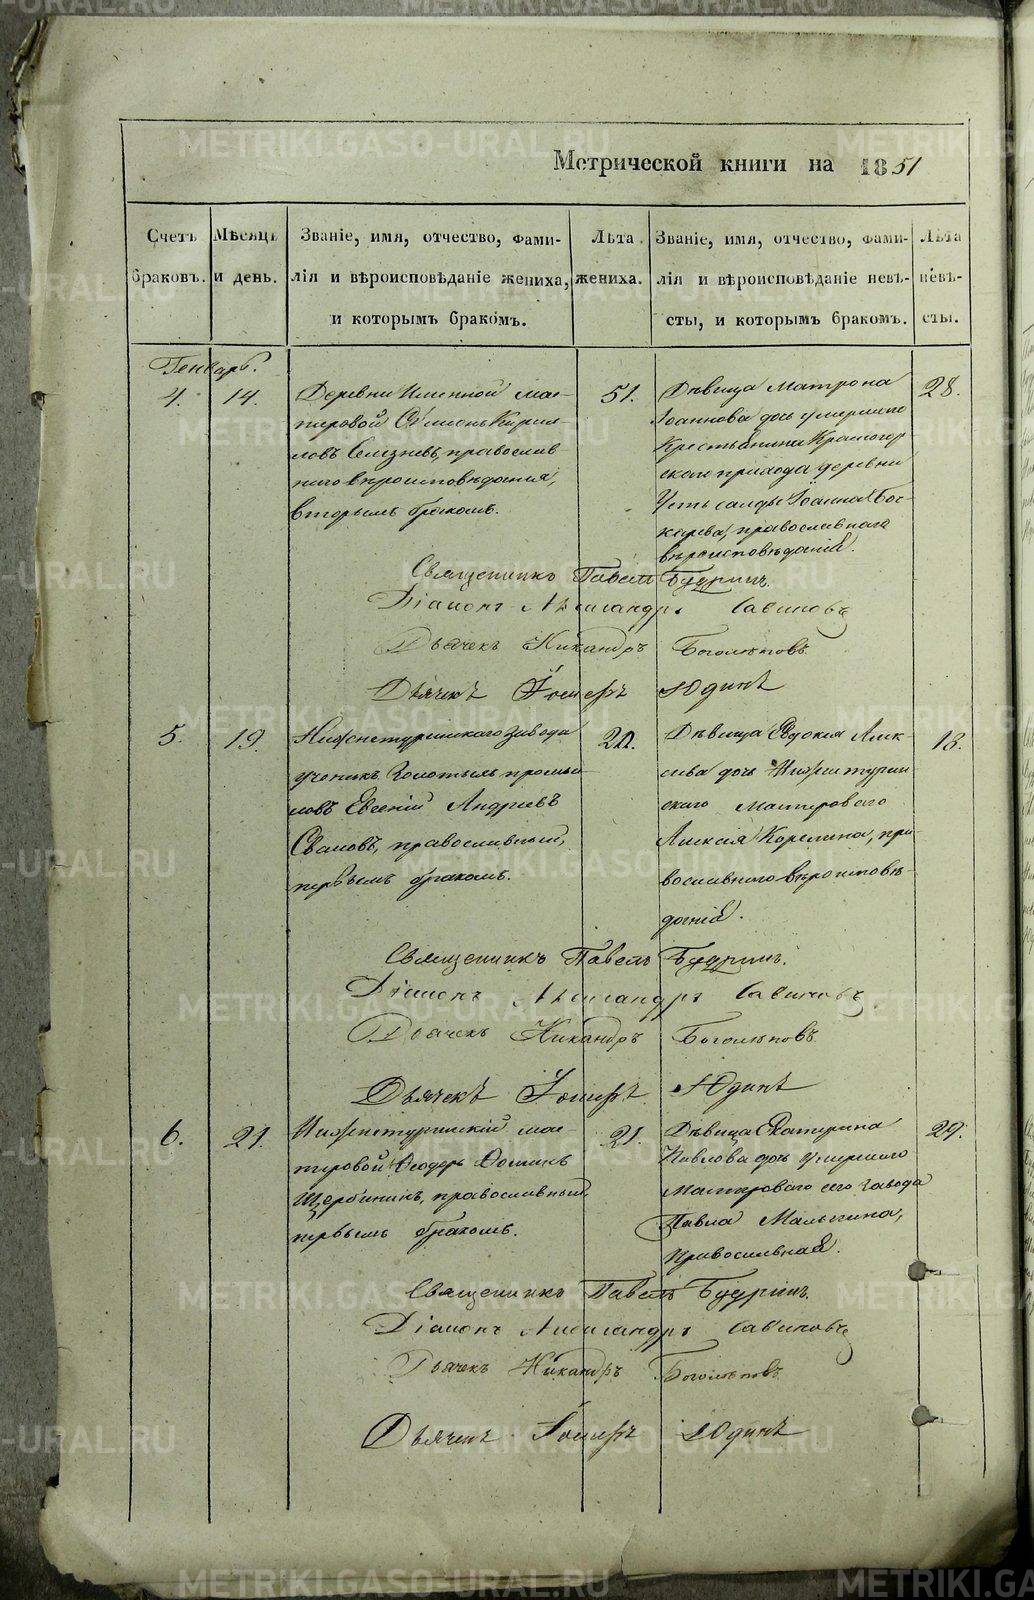 Метрической книги на 1851
Счетъ браковъ.
Мѣсяцъ и день.
Званіе, имя, отчество, фами-
лія и вѣроисповѣданіе жениха,
и которымъ бракомъ.
Лѣта жениха.
Званіе, имя, отчество, фами-
лія и вѣроисповѣданіе невѣ-
сты, и которымъ бракомъ.
Лѣта невѣ-
сты.
Генварь.
4. 14.
Деревни Именной мас-
теровой Симеонъ Кирил-
ловъ Селезневъ, православ-
наго вѣроисповѣданія,
вторымъ бракомъ.
51.
Дѣвица Матрона
Іоаннова дочь умершаго
Крестьянина Красногор-
скаго прихода деревни
Усть салды Іоанна
православнаго
вѣроисповѣданія.
28.
Священникъ Павелъ Будринъ.
Діаконъ Александръ Савиновъ
Дьячекъ Никандръ Боголѣповъ
Дьячекъ Іосифъ Юдинъ
5. 19.
Нижнетуринскаго завода
ученикъ Золотыхъ промы-
ловъ Евгеній Андреевъ
православный,
первымъ бракомъ.
20.
Дѣвица Евдокія Алек-
сѣева дочь Нижнетурин-
скаго мастероваго
Алексія Корелина, пра
вославнаго вѣроисповѣ-
данія.
18.
Священникъ Павелъ Будринъ.
Діаконъ Александръ Савиновъ
Дьячекъ Никандръ Боголѣповъ
Дьячекъ Іосифъ Юдинъ
6. 21.
Нижнетуринскій мас-
теровой Ѳеодоръ Ѳоминъ
Щербининъ, православный,
первымъ бракомъ.
21.
Дѣвица Екатерина
Павлова дочь умершаго
Мастероваго сего завода
Павла Малыгина,
православная.
29.
Священникъ Павелъ Будринъ.
Діаконъ Александръ Савиновъ
Дьячекъ Никандръ Боголѣповъ
Дьячекъ Іосифъ Юдинъ
METRIKI.GASO-URAL.RU